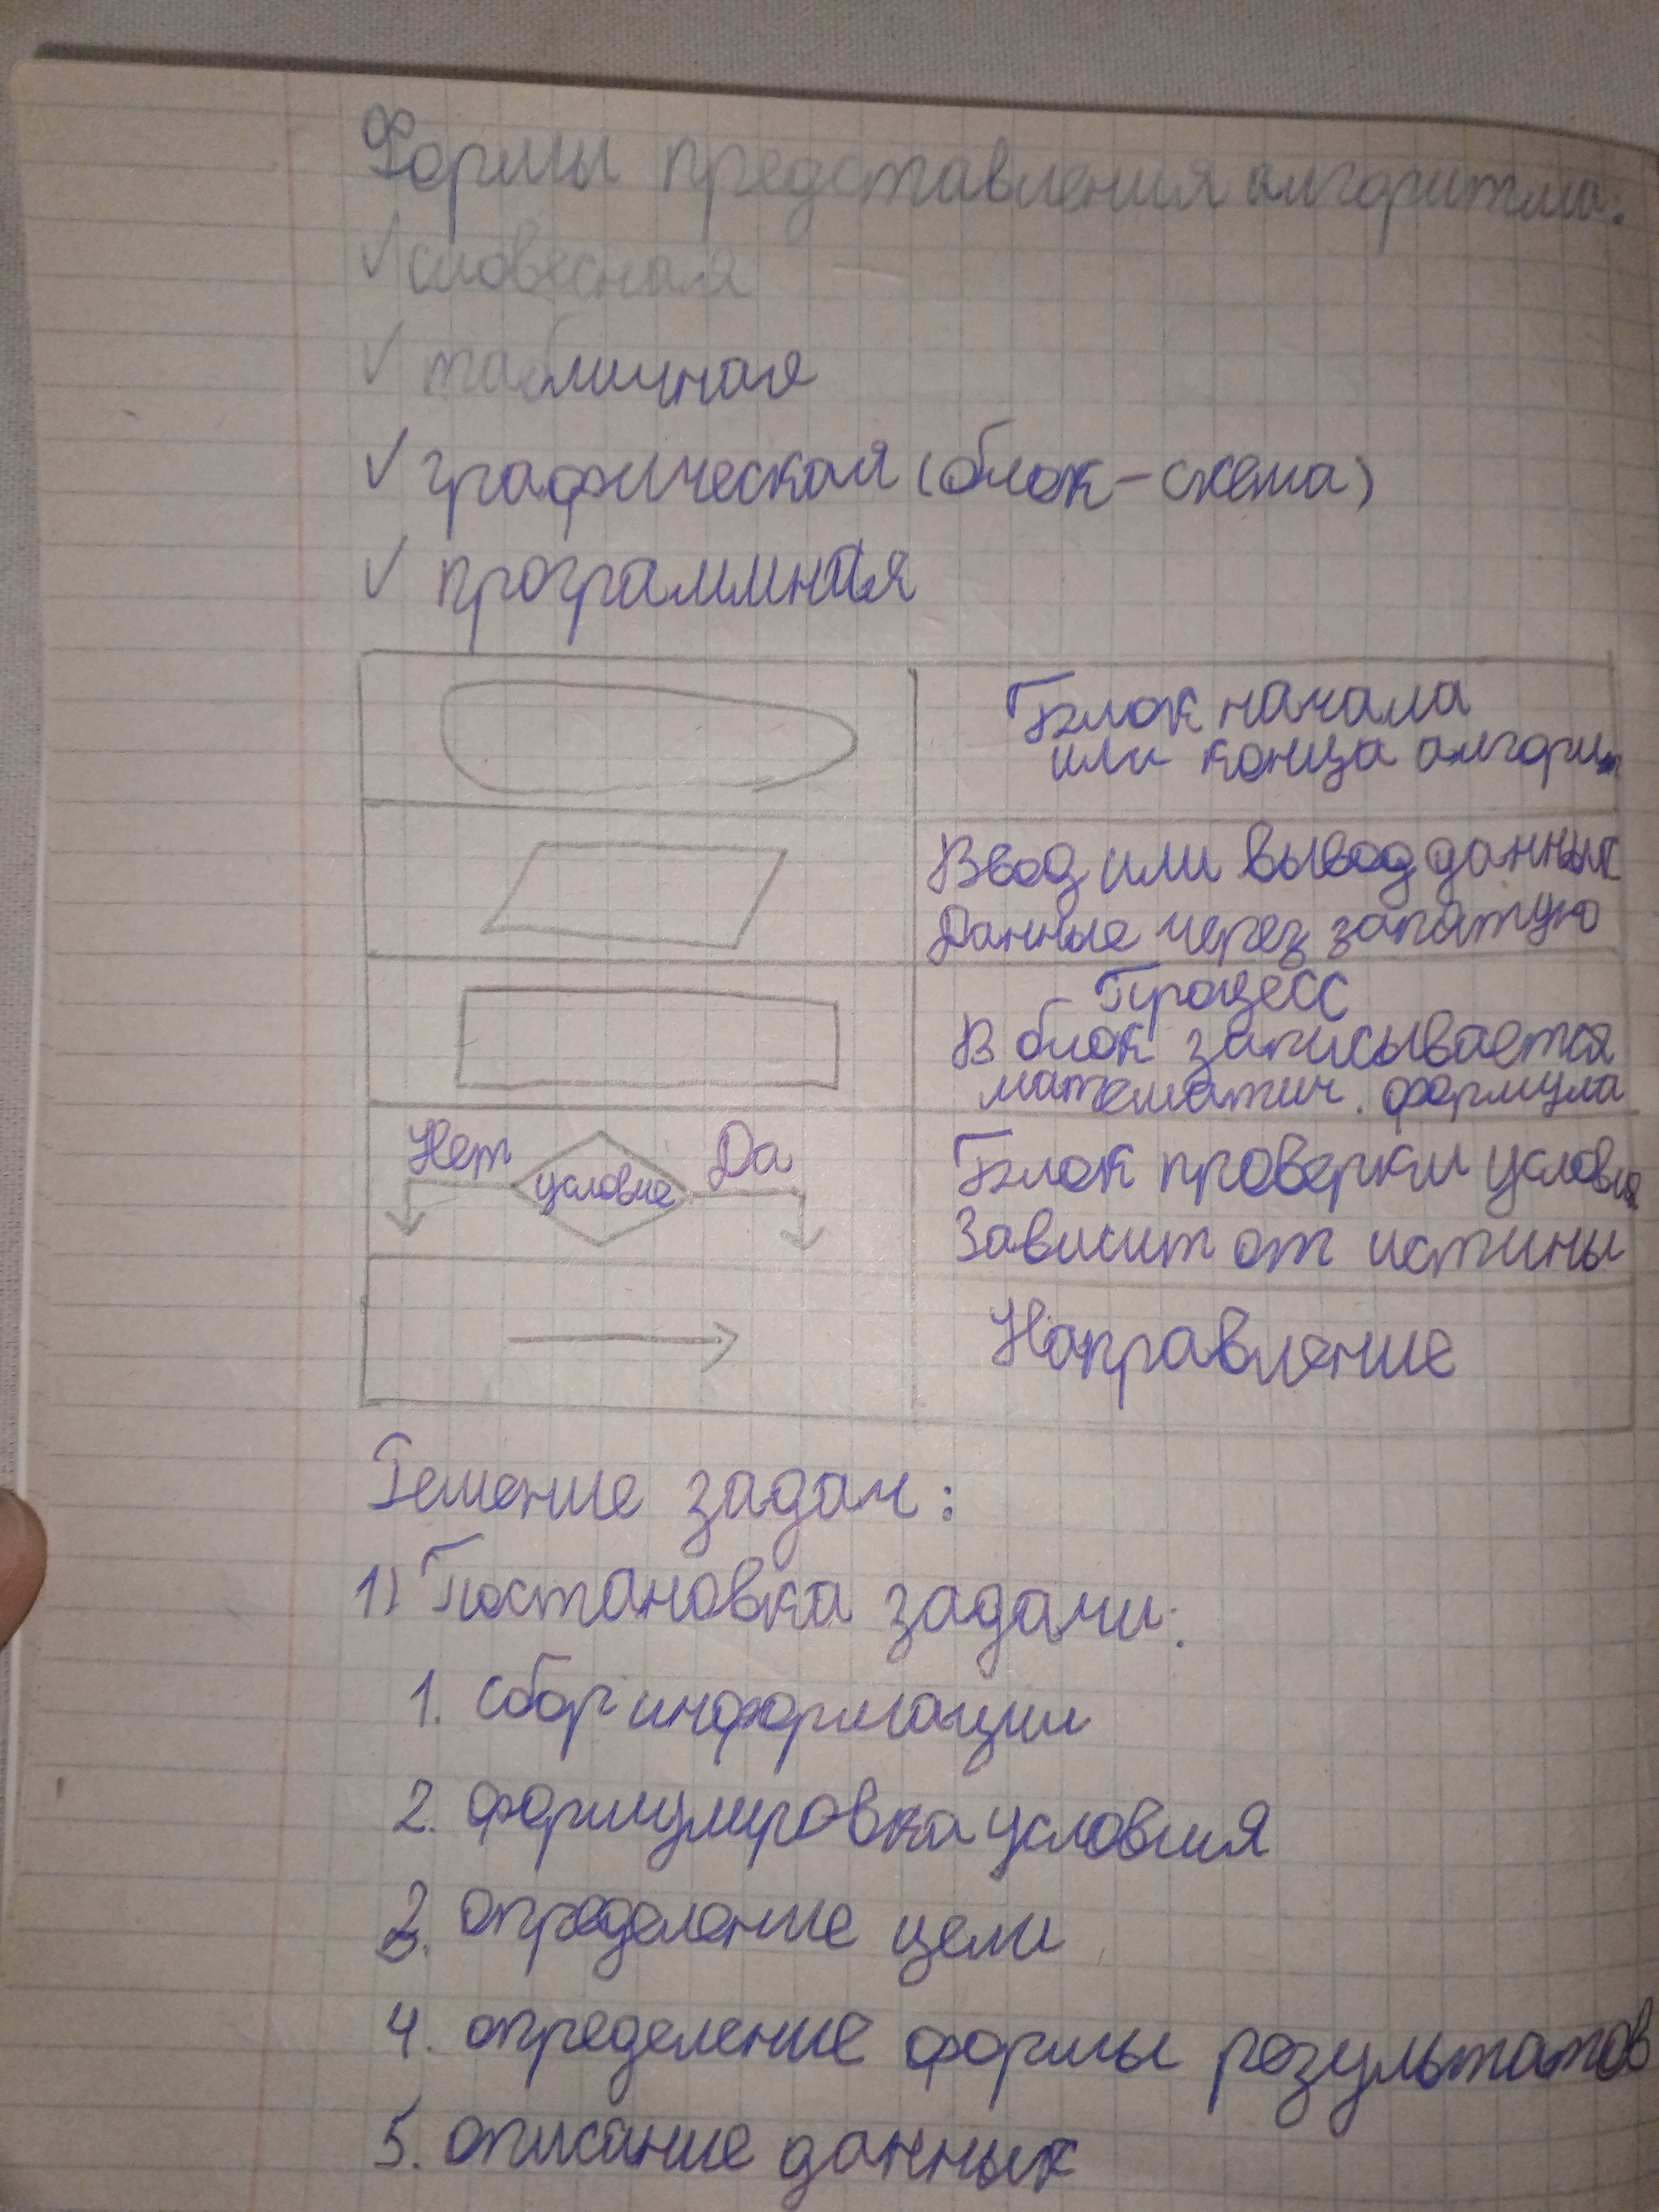 Формы представления алгоритма:
✓ словесная
✓ табличная
✓ графическая (блок-схема)
✓ программная
Блок начала
или конца алгоритм
Ввод или вывод данных
Данные через запятую
Процесс
В блок записывается
математич. формула
Нет
условие
Да
Блок проверки условия
Зависит от истины
Направление
Решение задач:
1) Постановка задачи:
1. сбор информации
2. формулировка условия
3. определение цели
4. определение формы результатов
5. описание данных